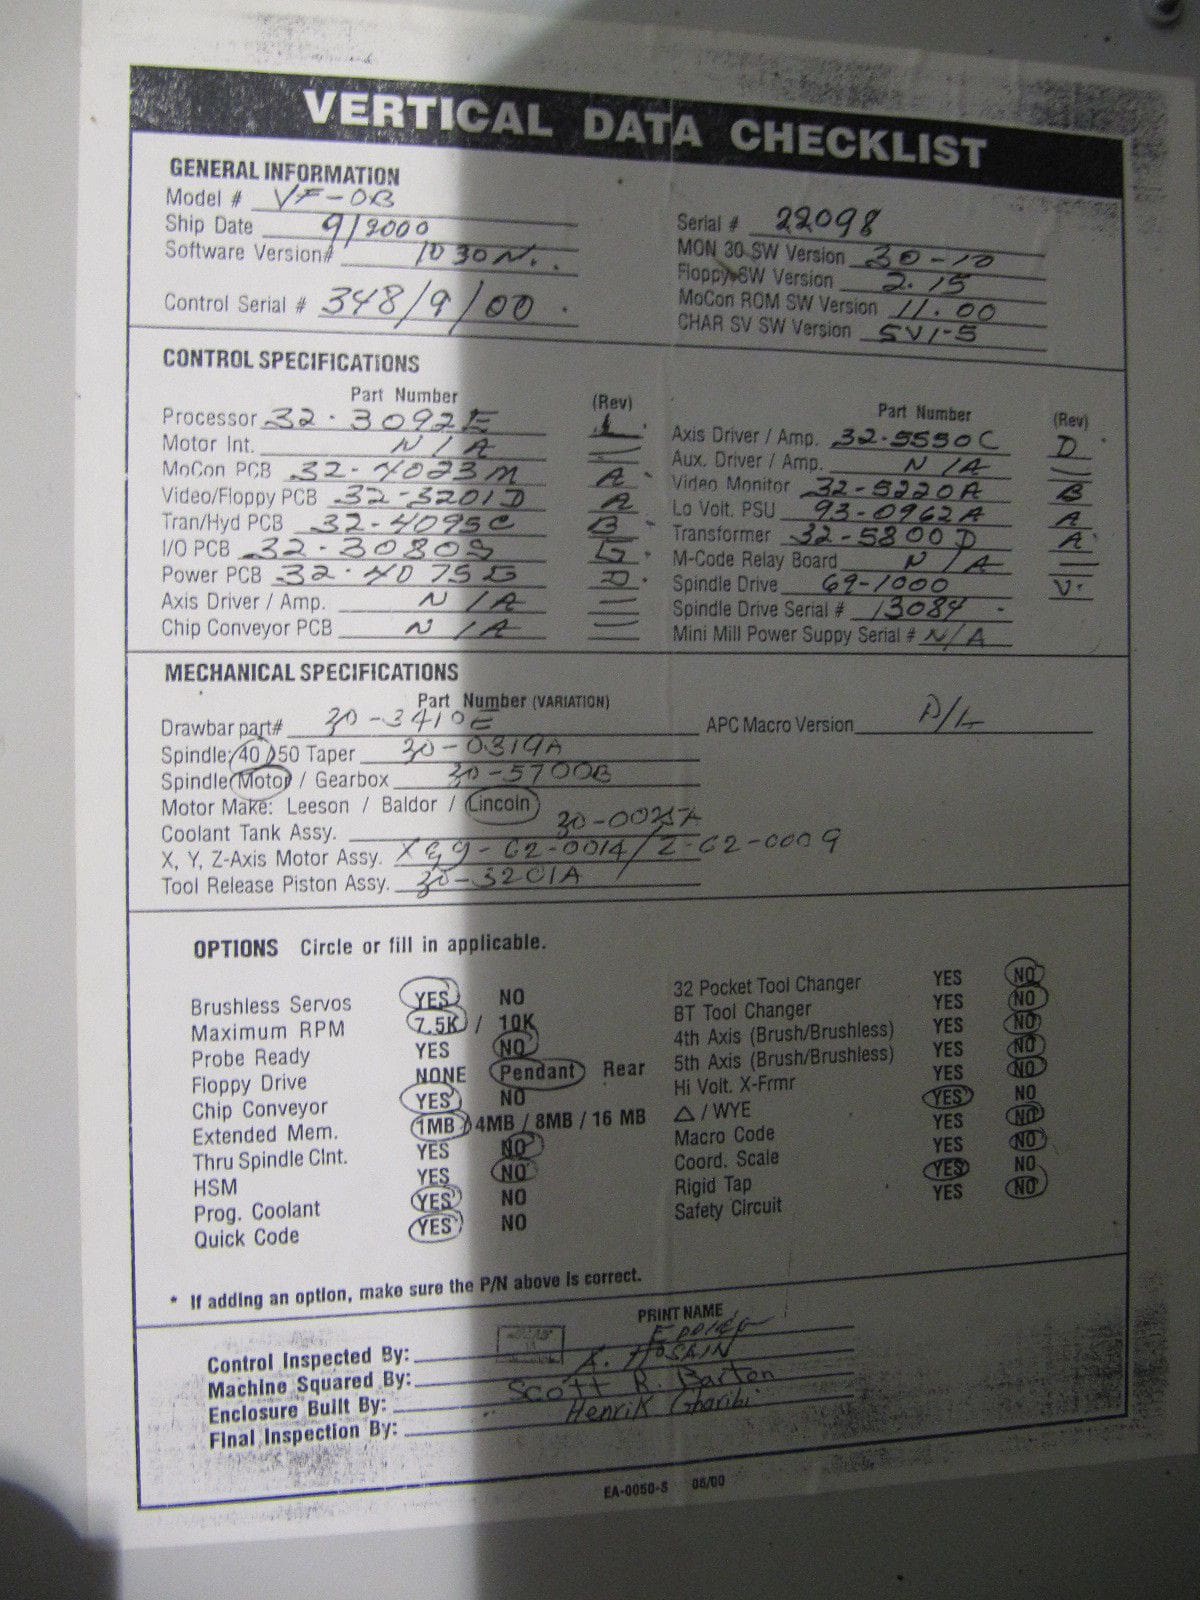 VERTICAL DATA CHECKLIST
GENERAL INFORMATION
Model # VF-OB
Ship Date 9/2000
Software Version# 1030N.
Control Serial # 348/9/00
Serial # 22098
MON 30 SW Version 30-10
Floppy SW Version 2.15
MoCon ROM SW Version 11.00
CHAR SV SW Version SV1-5
CONTROL SPECIFICATIONS
Part Number (Rev)
Processor 32-3092E
Motor Int. N/A
MoCon PCB 32-4023M A
Video/Floppy PCB 32-3201D A
Tran/Hyd PCB 32-4095C B
I/O PCB 32-3080S G
Power PCB 32-4075G D
Axis Driver / Amp. N/A
Chip Conveyor PCB N/A
Part Number (Rev)
Axis Driver / Amp. 32-5550C D
Aux. Driver / Amp. N/A
Video Monitor 32-5220A B
Lo Volt. PSU 93-0962A A
Transformer 32-5800D A
M-Code Relay Board N/A
Spindle Drive 69-1000 V
Spindle Drive Serial # 13084
Mini Mill Power Suppy Serial # N/A
MECHANICAL SPECIFICATIONS
Part Number (VARIATION)
Drawbar part# 30-3410E
APC Macro Version
Spindle: 40 / 50 Taper 30-0319A
Spindle Motor / Gearbox 30-5700B
Motor Make: Leeson / Baldor / Lincoln
Coolant Tank Assy. 30-0025A
X, Y, Z-Axis Motor Assy. X&Y-62-0014/Z-62-0009
Tool Release Piston Assy. 30-3201A
OPTIONS Circle or fill in applicable.
Brushless Servos YES NO
Maximum RPM 7.5K / 10K
Probe Ready YES NO
Floppy Drive NONE Pendant Rear
Chip Conveyor YES NO
Extended Mem. 1MB / 4MB / 8MB / 16 MB
Thru Spindle Clnt. YES NO
HSM YES NO
Prog. Coolant YES NO
Quick Code YES NO
32 Pocket Tool Changer YES NO
BT Tool Changer YES NO
4th Axis (Brush/Brushless) YES NO
5th Axis (Brush/Brushless) YES NO
Hi Volt. X-Frmr YES NO
△ / WYE YES NO
Macro Code YES NO
Coord. Scale YES NO
Rigid Tap YES NO
Safety Circuit YES NO
* If adding an option, make sure the P/N above is correct.
PRINT NAME
Control Inspected By:
Machine Squared By: A. HOSAIN
Enclosure Built By: Scott R. Barton
Final Inspection By: Henrik Gharibi
EA-0050-S 08/00